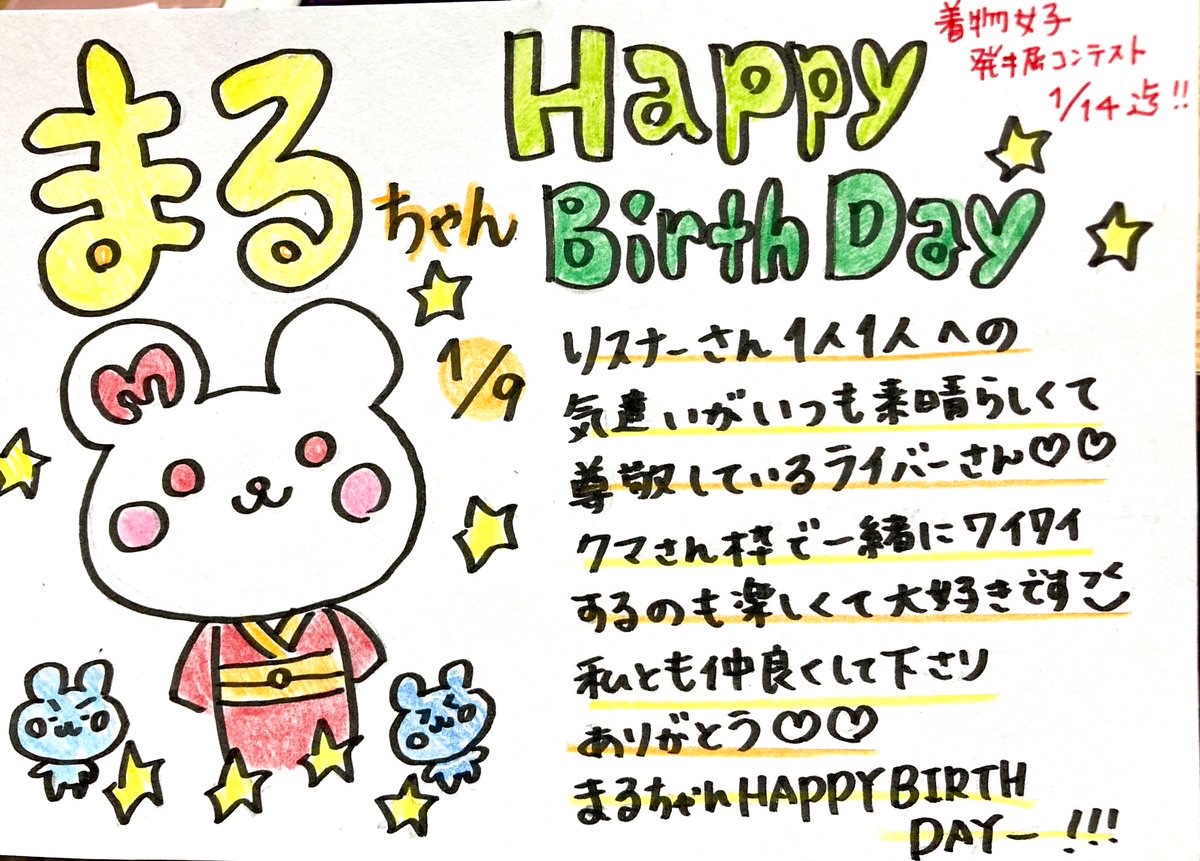 まるちゃん
Happy
Birth Day
着物女子
発掘コンテスト
1/14迄!!
1/9
M
リスナーさん1人1人への
気遣いがいつも素晴らしくて
尊敬しているライバーさん♡♡
クマさん枠で一緒にワイワイ
するのも楽しくて大好きです
私とも仲良くして下さり
ありがとう♡♡
まるちゃんHAPPY BIRTH
DAYー!!!